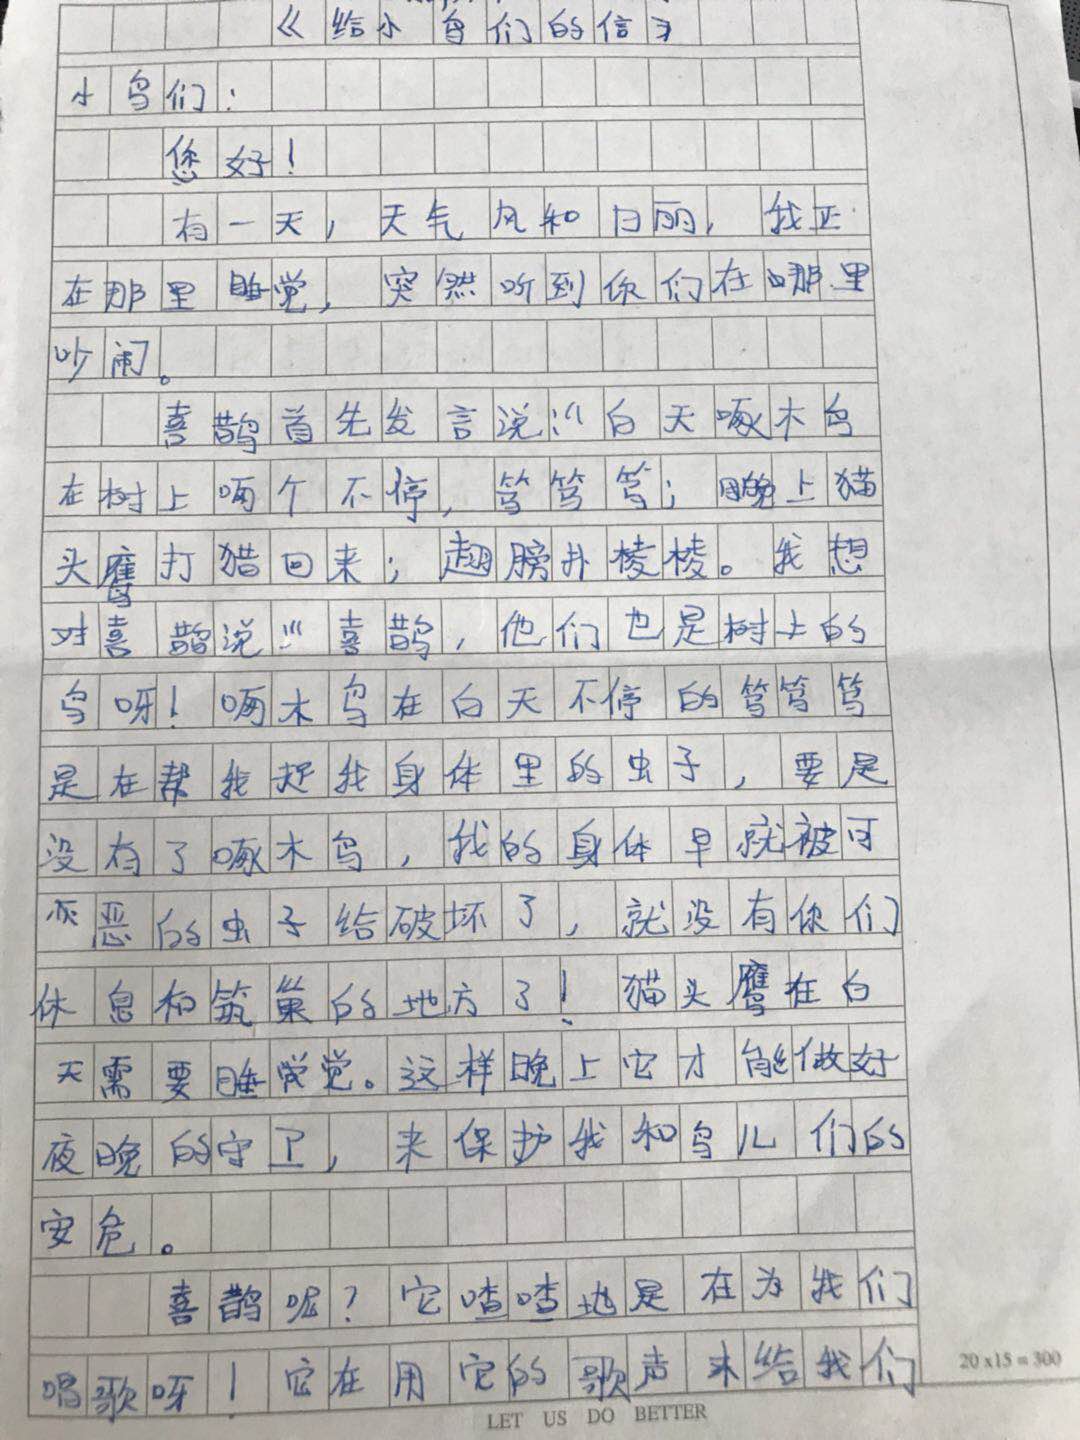 《给小鸟们的信》
小鸟们：
您好！
有一天，天气风和日丽，我正
在那里睡觉，突然听到你们在哪里
吵闹。
喜鹊首先发言说：“白天啄木鸟
在树上啄个不停，笃笃笃；晚上猫
头鹰打猎回来；翅膀扑棱棱。我想
对喜鹊说：“喜鹊，他们也是树上的
鸟呀！啄木鸟在白天不停的笃笃笃
是在帮我捉我身体里的虫子，要是
没有了啄木鸟，我的身体早就被可
恶的虫子给破坏了，就没有你们
休息和筑巢的地方了！猫头鹰在白
天需要睡觉觉。这样晚上它才能做好
夜晚的守卫，来保护我和鸟儿们的
安危。
喜鹊呢？它喳喳地是在为我们
唱歌呀！它在用它的歌声来给我们
20 x15 = 300
LET US DO BETTER